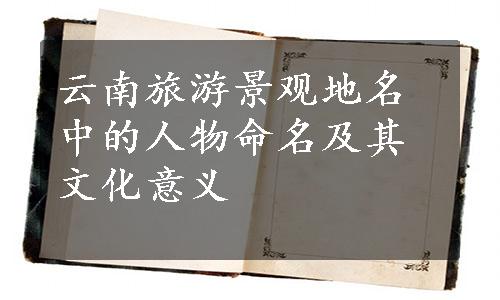 云南旅游景观地名
中的人物命名及其
文化意义